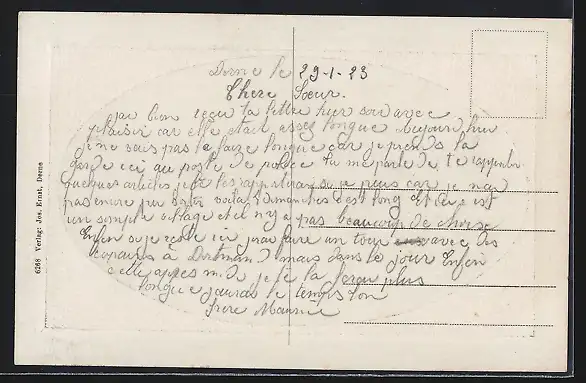 Dorne le 29-1-23
Chere Sœur.
jai bien reçu ta lettre hier soir avec
plaisir car elle etait assez longue Aujourd hui
je ne vais pas la faire longue car je prends la
garde ici au poste de police tu me parle de te rapporter
quelques articles je te les rapporterai si je peus car je n ai
pas encore pu sortir voila 2 dimanches c est long et ici c est
un simple village et il n y a pas beaucoup de chose
Enfin si je reste ici jirai faire un tour avec des
copains à mais dans le jour Enfin
cette apres m.d. je te la ferai plus
longue jaurai le temps ton
frere Maurice
6268 Verlag: Jos. Ernst, Dorne